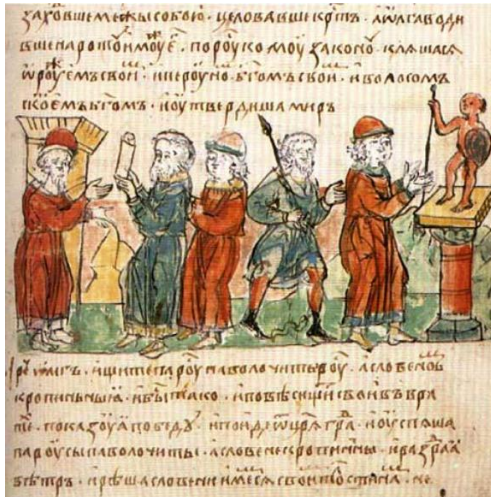 заховшемежысобою · целовавшекрⷭтъ · аѡлгаводи
вшенароту · порѹскомѹзаконѹ · клѧшасѧ
ѡрѹжемъсвоиⷨ · иперѹноⷨ б҃гомъсвоиⷨ · иволосомъ
скоемъб҃гомъ · иѹтвердишамиръ
ірⷱеѡлгъ · ищитепарѹ паволочитырѹⷭ · асловеноⷨ
кропиньныѧ · ибыⷭтако · иповѣсищиⷮсвоивъвра
теⷯ · показѹапобедѹ · ипоидеѿцрѧграⷣ · иѹспѧша
парѹсыпаволочиты · асловенекропинны · ираздраа
вѣтръ · ирѣшасловени имесѧсвоиⷨтолстинаⷨ · не